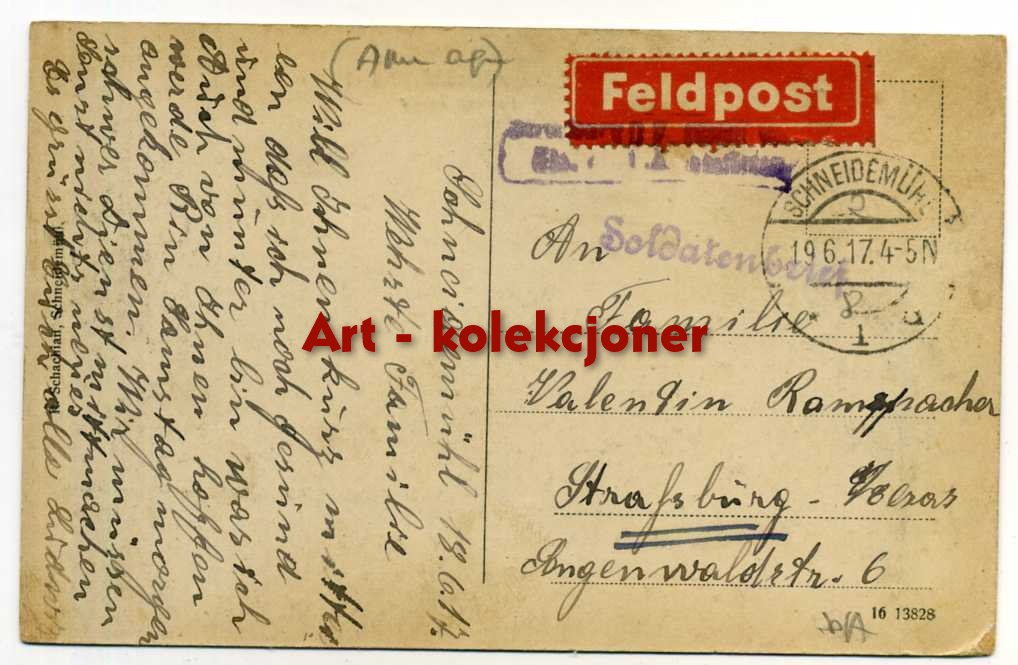 (
Feldpost
SCHNEIDEMÜHL
19.6.17.4-5N
Soldatenbrief
An
Familie
Valentin Ramspacher
Straßburg -
6
16 13828
Schneidemühl 18.6.17.
Wehrte Familie
Will Ihnen kurz mittei
len daß ich noch gesund
und munter bin was ich
Auch von Ihnen hoffen
werde, Bin Samstag morgen
angekommen. Wir müssen
schwer Dienst mitmachen
sonst nichts neues
Es grüßt Euch alle
Schachian, Schneidemühl.
Art - kolekcjoner